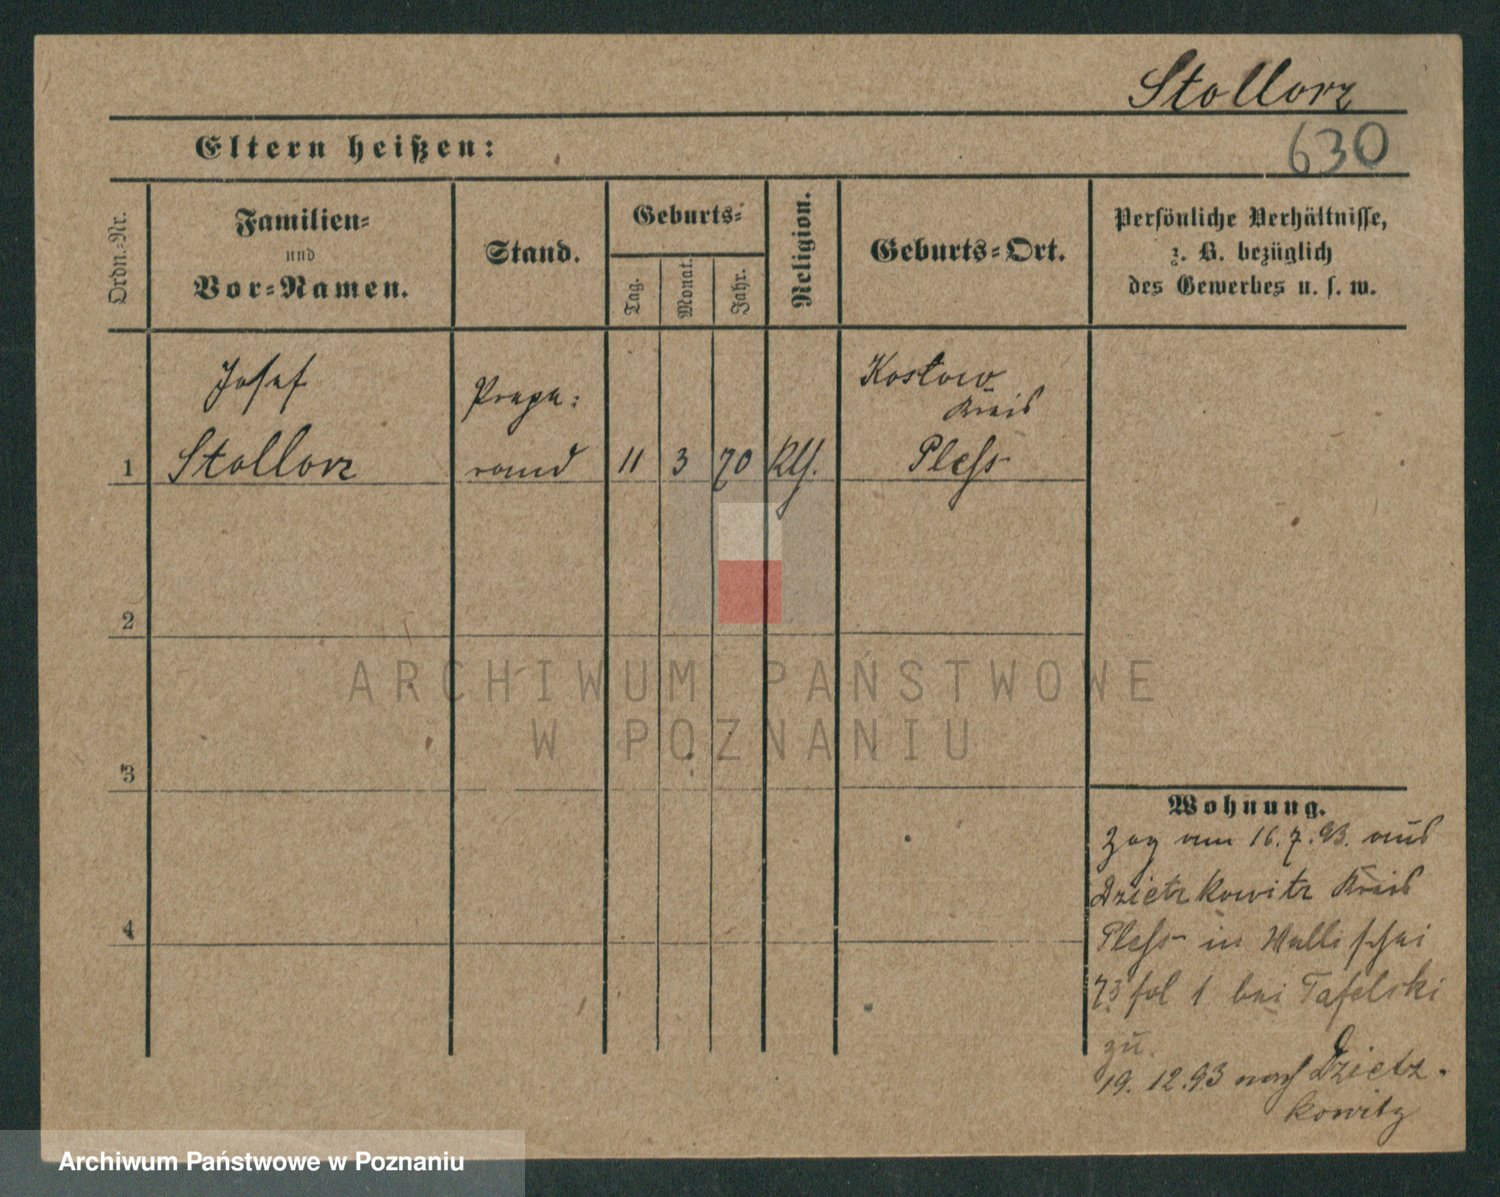 Stollorz
Eltern heißen:
630
Ordn.=Nr.
Familien=
und
Vor=Namen.
Stand.
Geburts=
Tag.
Monat.
Jahr.
Religion.
Geburts=Ort.
Persönliche Verhältnisse,
z. B. bezüglich
des Gewerbes u. s. w.
Josef
Stollorz
Prepa:
rand
11 3 70 Kth.
Kostow
Kreis
Pless
1
2
3
4
Wohnung.
Zog am 16.7.93. aus
Dzietzkowitz Kreis
Pless in Wallischei
73 fol 1 bei Tafelski
zu.
19.12.93 nach Dzietz-
kowitz
ARCHIWUM PAŃSTWOWE
W POZNANIU
Archiwum Państwowe w Poznaniu